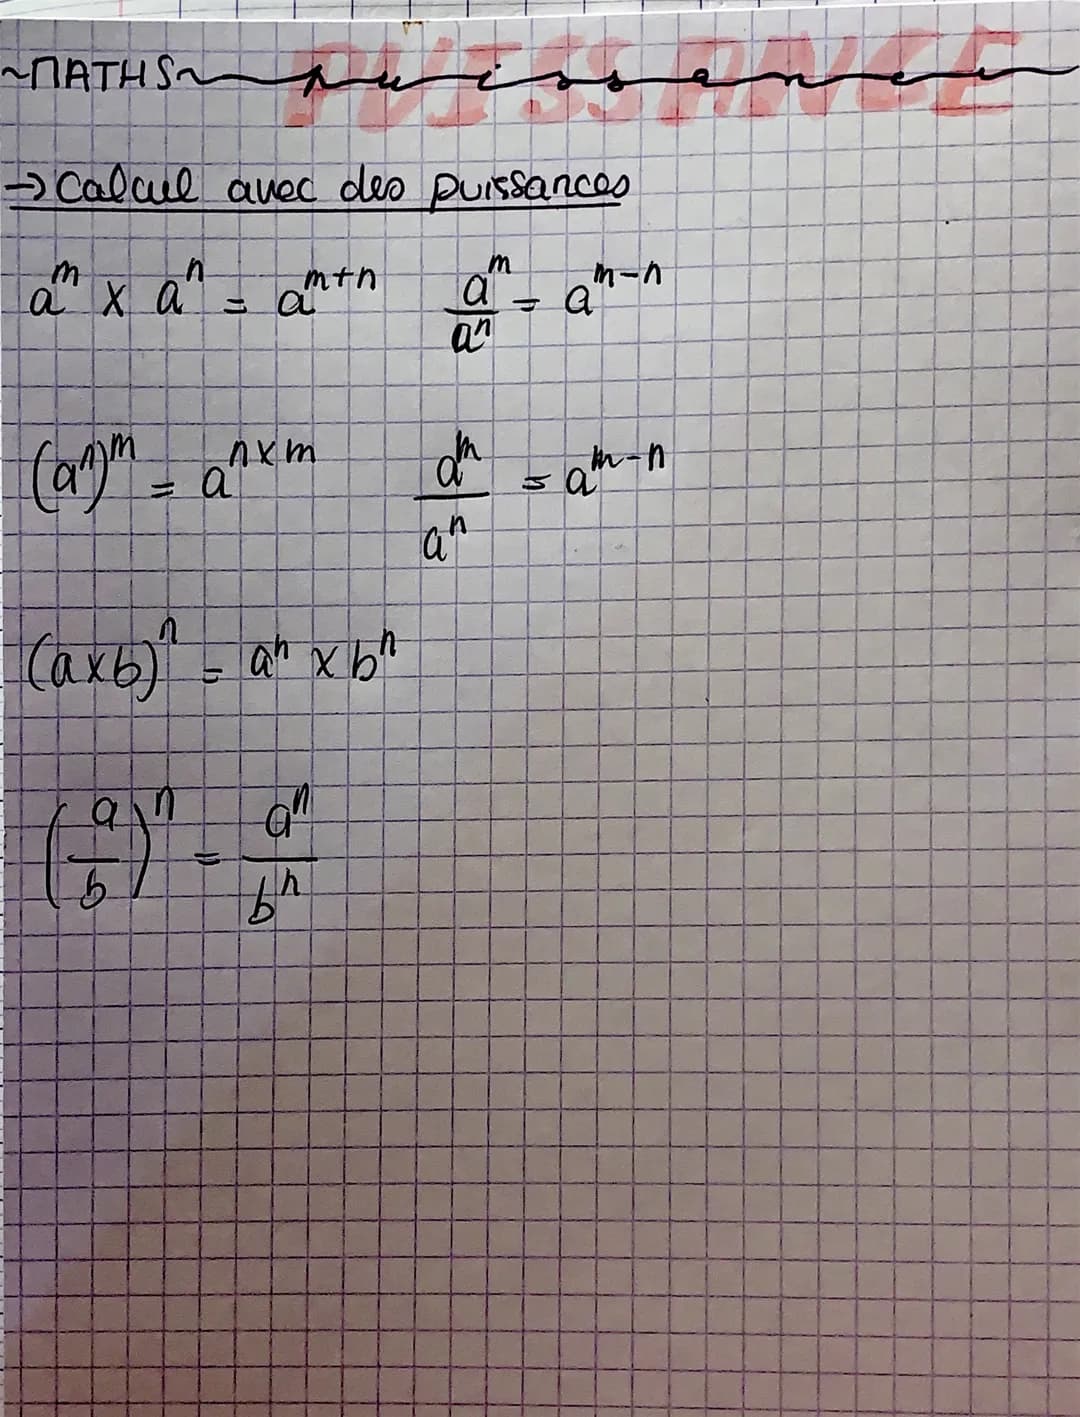 ~MATHS~ puissance PUISSANCE
→ Calcul avec des puissances
a^m x a^n = a^m+n    a^m/a^n = a^m-n
(a^n)^m = a^nxm    a^m/a^n = a^m-n
(axb)^n = a^n x b^n
(a/b)^n = a^n/b^n